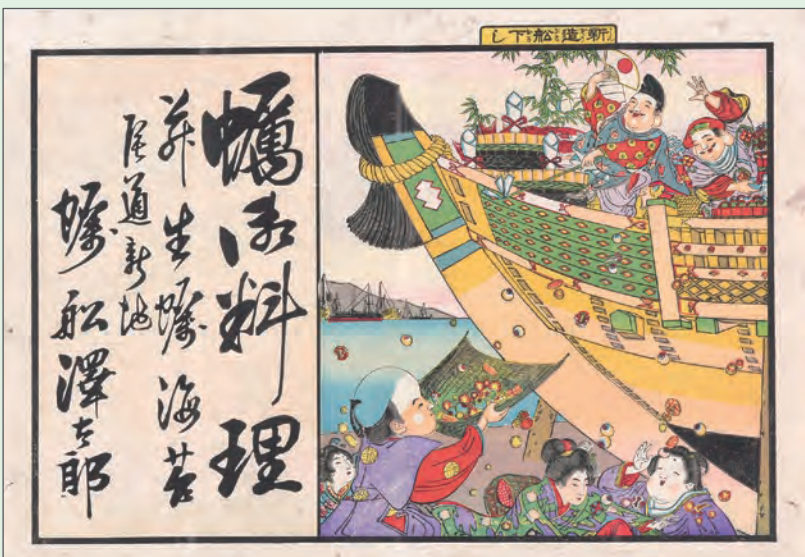 新造舩下し
蠣御料理
并生蠣海苔
尾道新地
蠣舩澤太郎